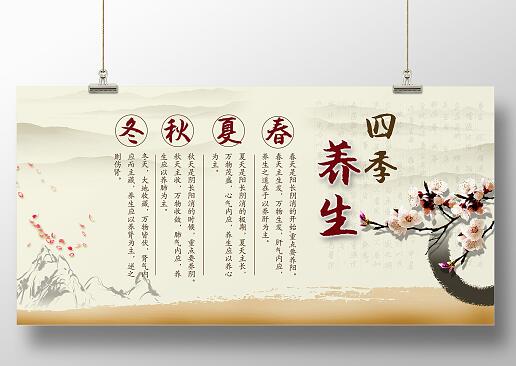 四季
养生
春
春天是阳长阴消的开始重点要养阳。
春天主生发，万物生发，肝气内应，
养生之道在于以养肝为主。
夏
夏天是阳长阴消的极期，夏天主长，
万物茂盛，心气内应，养生应以养心
为主。
秋
秋天是阴长阳消的时候，重点要养阴。
秋天主收，万物收敛，肺气内应，养
生应以养肺为主。
冬
冬天，大地收藏，万物皆伏，肾气内
应而主藏，养生应以养肾为主，逆之
则伤肾。